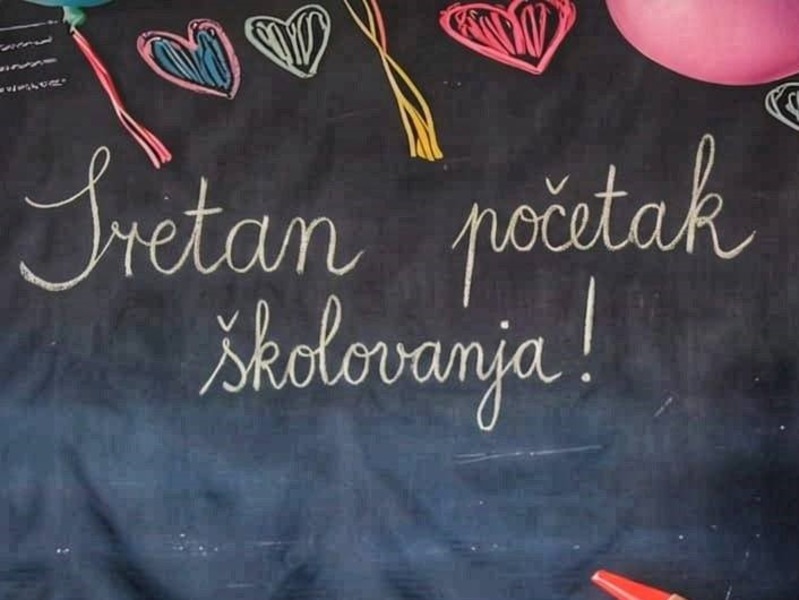 Sretan početak
školovanja!